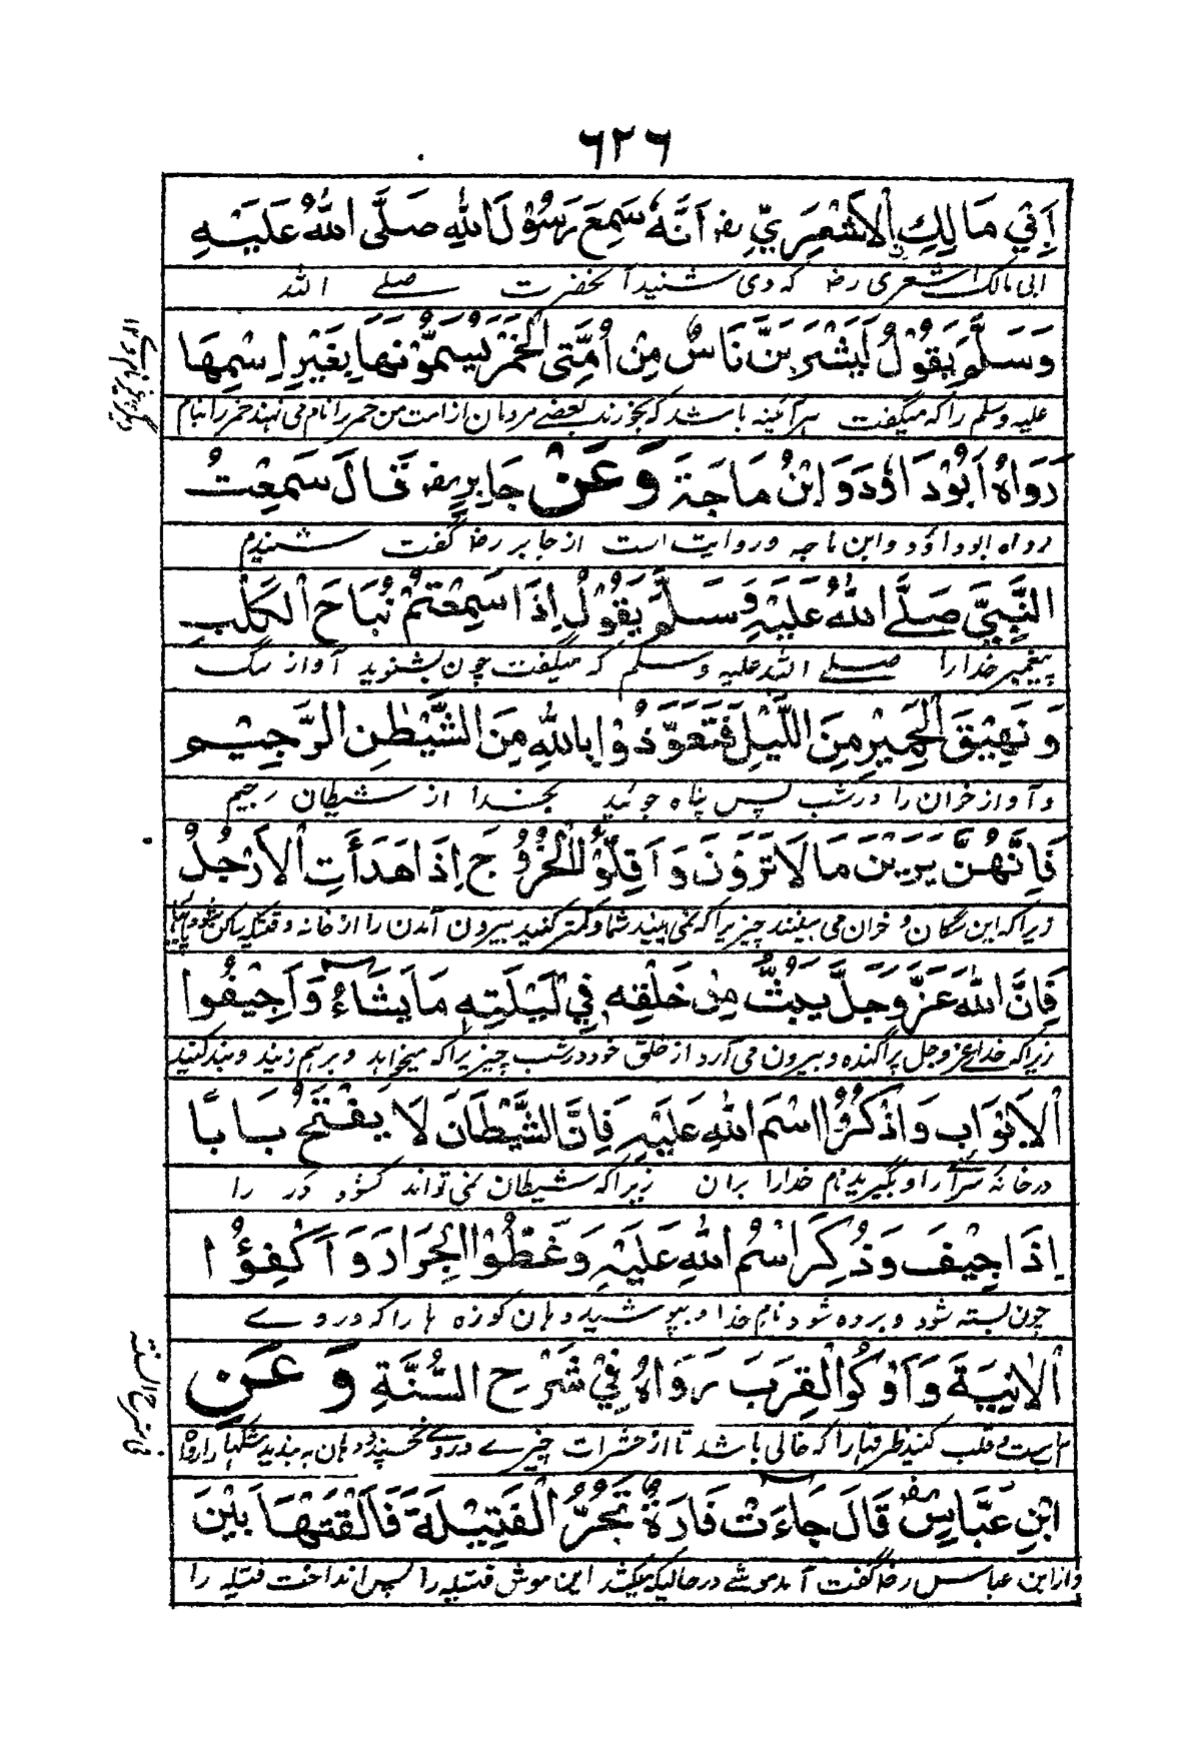 ٦٢٦
اَبِيْ مَالِكِ الْاَشْعَرِيِّ رضـ اَنَّهٗ سَمِعَ رَسُوْلَ اللهِ صَلَّى اللهُ عَلَيْهِ
ابی مالک اشعری رضـ که وی شنید آنحضرت صلے الله
وَسَلَّمَ يَقُوْلُ لَيَشْرَبَنَّ نَاسٌ مِنْ اُمَّتِى الْخَمْرَ يُسَمُّوْنَهَا بِغَيْرِ اِسْمِهَا
علیه وسلم را که میگفت هر آئینه باشد که بخورند بعضے مردمان از امت من خمر را نام می نهند خمر را بنام
رَوَاهُ اَبُوْدَاوٗدَ وَابْنُ مَاجَةَ وَعَنْ جَابِرٍ رضـ قَالَ سَمِعْتُ
رواه ابوداؤد وابن ماجه وروایت است از جابر رضـ گفت شنیدم
النَّبِيَّ صَلَّے اللهُ عَلَيْهِ وَسَلَّمَ يَقُوْلُ اِذَا سَمِعْتُمْ نُبَاحَ الْكَلْبِ
پیغمبر خدارا صلے الله علیه وسلم که میگفت چون بشنوید آواز سگ
وَنَهِيْقَ الْحَمِيْرِ مِنَ اللَّيْلِ فَتَعَوَّذُوْا بِاللهِ مِنَ الشَّيْطٰنِ الرَّجِيْمِ
وآواز خران را در شب پس پناه جوئید بخدا از شیطان رجیم
فَاِنَّهُنَّ يَرَيْنَ مَا لَا تَرَوْنَ وَاَقِلُّوْا الْخُرُوْجَ اِذَا هَدَأَتِ الْاَرْجُلُ
زیرا که این سگان و خران می بینند چیزیرا که نمی بینید شما و کمتر کنید بیرون آمدن را از خانه وقتیکه ساکن شود پایها
فَاِنَّ اللهَ عَزَّوَجَلَّ يَبُثُّ مِنْ خَلْقِهٖ فِيْ لَيْلَتِهٖ مَا يَشَآءُ وَاَجِيْفُوا
زیرا که خدا عزوجل پراگنده و بیرون می آرد از خلق خود در شب چیزیرا که میخواهد و برهم زنید و بند کنید
الْاَبْوَابَ وَاذْكُرُوْا اسْمَ اللهِ عَلَيْهِ فَاِنَّ الشَّيْطَانَ لَا يَفْتَحُ بَابًا
در خانه سرائے را و بگیرید نام خدارا بران زیرا که شیطان نمی تواند کشود در را
اِذَا اجِيْفَ وَذُكِرَ اسْمُ اللهِ عَلَيْهِ وَغَطُّوْا الْجِرَارَ وَاَكْفِؤُا
چون بسته شود و برده شود نام خدا و بپوشید دهان کوزه ها را که در وے
الْاٰنِيَةَ وَاَوْكُوا الْقِرَبَ رَوَاهُ فِيْ شَرْحِ السُّنَّةِ وَعَنِ
آب است و قلب کنید ظرفها را که خالی باشد تا از حشرات چیزے در وے نخسپند و دهان به بندید مشکها را رواه
فی شرح السنة
ابْنِ عَبَّاسٍ رضـ قَالَ جَآءَتْ فَارَةٌ تَجُرُّ الْفَتِيْلَةَ فَاَلْقَتْهَا بَيْنَ
واز ابن عباس رضـ گفت آمد موشے در حالیکه میکشد این موش فتیله را پس انداخت فتیله را